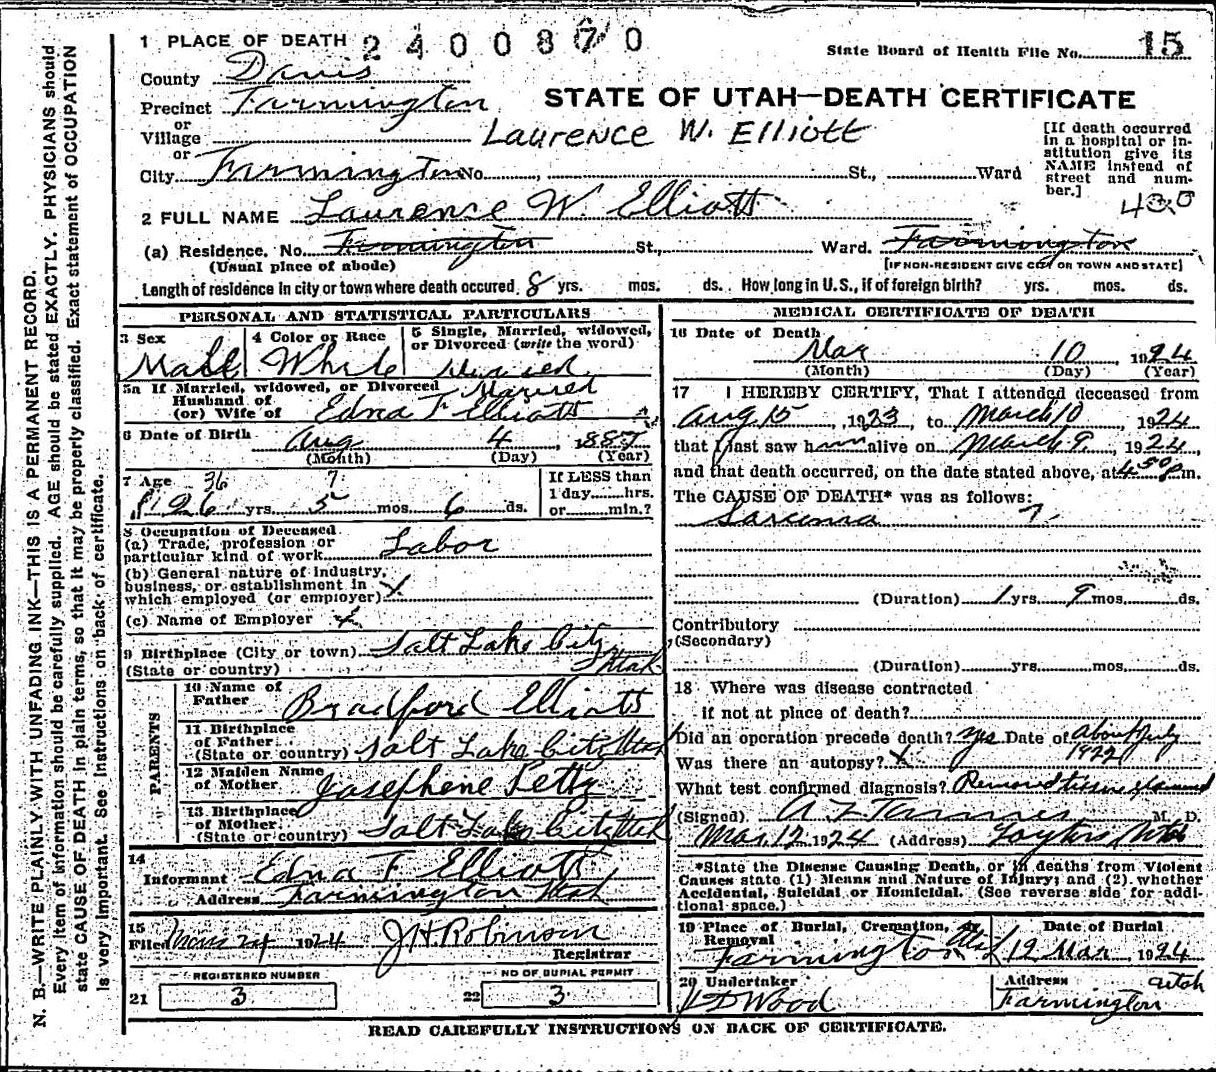 1 PLACE OF DEATH 2400870
State Board of Health File No. 15
County Davis
Precinct Farmington
STATE OF UTAH—DEATH CERTIFICATE
or
Village
Laurence W. Elliott
or
City Farmington No. , St., Ward
[If death occurred in a hospital or institution give its NAME instead of street and number.]
430
2 FULL NAME Laurence W. Elliott
(a) Residence. No. Farmington St., Ward. Farmington
(Usual place of abode) [IF NON-RESIDENT GIVE CITY OR TOWN AND STATE]
Length of residence in city or town where death occured. 8 yrs. mos. ds. How long in U.S., if of foreign birth? yrs. mos. ds.
PERSONAL AND STATISTICAL PARTICULARS
3 Sex
Male
4 Color or Race
White
5 Single, Married, widowed, or Divorced (write the word)
Married
5a If Married, widowed, or Divorced Married
Husband of
(or) Wife of Edna F Elliott
6 Date of Birth
Aug 4, 1887
(Month) (Day) (Year)
7 Age 36 7
26 yrs. 5 mos. 6 ds.
If LESS than
1 day hrs.
or min.?
8 Occupation of Deceased
(a) Trade, profession or
particular kind of work Labor
(b) General nature of industry,
business, or establishment in
which employed (or employer) x
(c) Name of Employer x
9 Birthplace (City or town) Salt Lake City
(State or country) Utah
PARENTS
10 Name of
Father Bradford Elliott
11 Birthplace
of Father
(State or country) Salt Lake City Utah
12 Maiden Name
of Mother Josephene
13 Birthplace
of Mother
(State or country) Salt Lake City Utah
14
Informant Edna F Elliott
Address Farmington Utah
15
Filed 24 1924 J H Robinson
Registrar
REGISTERED NUMBER
21 3
NO OF BURIAL PERMIT
22 3
MEDICAL CERTIFICATE OF DEATH
16 Date of Death
Mar 10 1924
(Month) (Day) (Year)
17 I HEREBY CERTIFY, That I attended deceased from
Aug 15, 1923, to March 10, 1924
that I last saw him alive on March 9, 1924,
and that death occurred, on the date stated above, at 4 50 p m.
The CAUSE OF DEATH* was as follows:
Sarcoma
(Duration) 1 yrs. 9 mos. ds.
Contributory
(Secondary)
(Duration) yrs. mos. ds.
18 Where was disease contracted
if not at place of death?
Did an operation precede death? yes Date of about July
1922
Was there an autopsy? x
What test confirmed diagnosis? Removed tissue examined
(Signed) A Z Tanner M. D.
Mar, 12 1924 (Address) Layton Utah
*State the Disease Causing Death, or in deaths from Violent
Causes state (1) Means and Nature of Injury; and (2) whether
Accidental, Suicidal, or Homicidal. (See reverse side for addi-
tional space.)
19 Place of Burial, Cremation, or
Removal
Farmington Utah
Date of Burial
12 Mar, 1924
20 Undertaker
Wood
Address Utah
Farmington
READ CAREFULLY INSTRUCTIONS ON BACK OF CERTIFICATE.
N. B.—WRITE PLAINLY WITH UNFADING INK—THIS IS A PERMANENT RECORD.
Every item of information should be carefully supplied. AGE should be stated EXACTLY. PHYSICIANS should
state CAUSE OF DEATH in plain terms, so that it may be properly classified. Exact statement of OCCUPATION
is very important. See instructions on back of certificate.